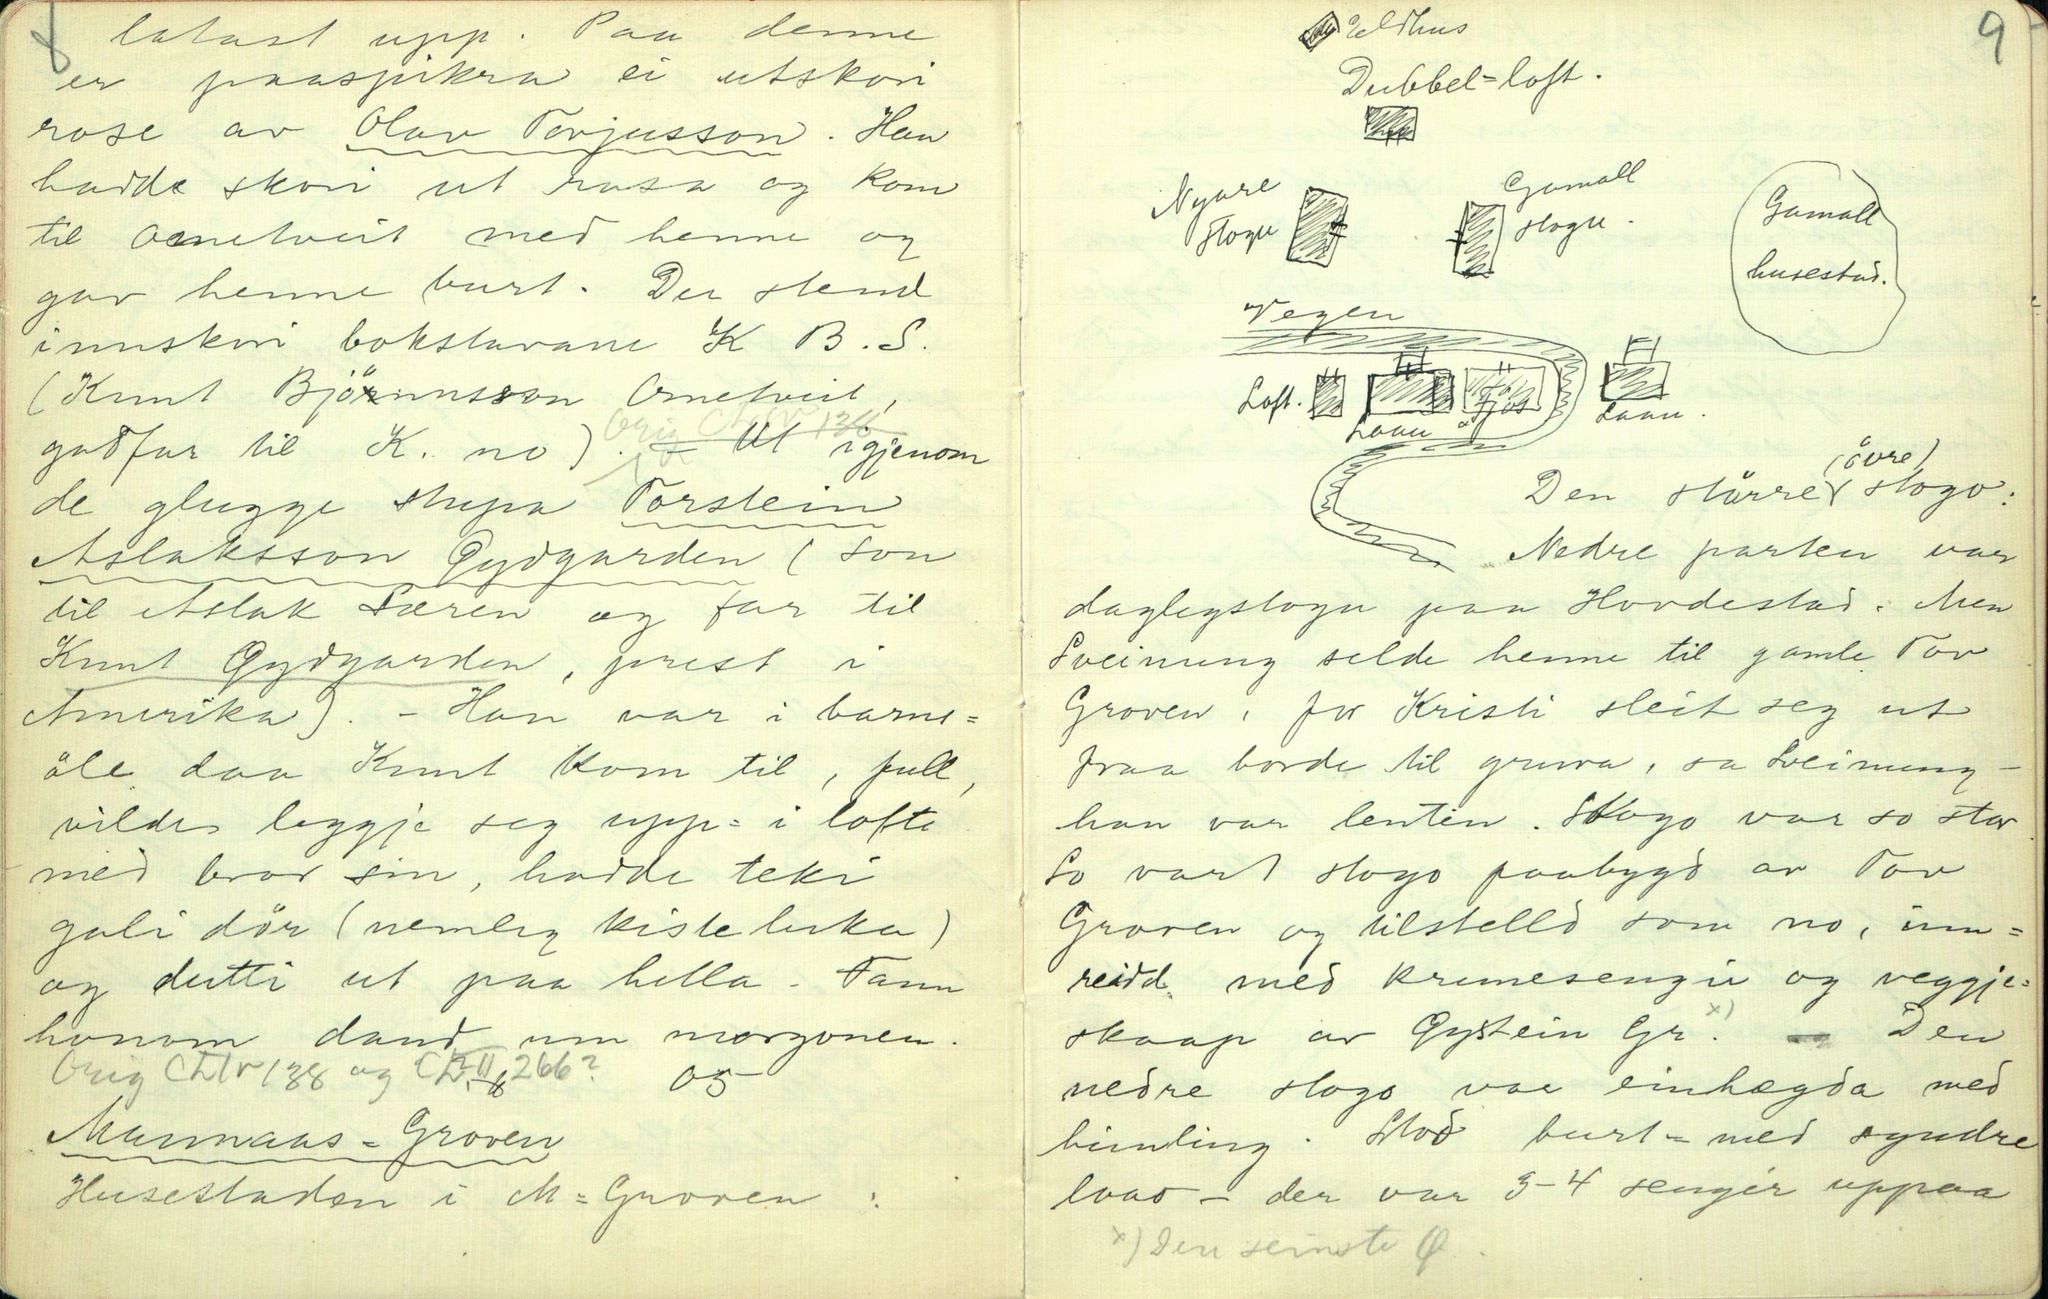 8
latast upp. Paa denne
er paaspikra ei utskori
rose av Olav Torjusson. Han
hadde skori ut rosa og kom
til Ornetveit med henne og
gav henne burt. Der stend
innskori bokstavane K B.S.
(Knut Björnusson Ornetveit,
godfar til K. no). - Ut igjenom
Orig Ch IV 138
de glugge stupa Torstein
Aslaksson Øydgarden (son
til Aslak Særen og far til
Knut Øydgarden, prest i
Amerika). - Han var i barns=
öle daa Knut kom til, full,
vilde leggje seg upp= i lofte
med bror sin, hadde teki
gali dör (nemleg kisteluka)
og dutti ut paa hella. Fann
honom daud um morgonen.
Orig Ch IV 138 og Ch II 266?
Munnaas=Groven
Husestaden i M=Groven :
9
Eldhus
Dubbel=loft.
Nyare
stogu
Gamall
stogu.
Gamall
husestad.
Vegen
Loft.
Laau
Fjos
Laau.
Den större (övre) stogo:
Nedre parten var
daglegstogu paa Hovdestad. Men
Sveinung selde henne til gamle Tor
Groven, for Kristi sleit seg ut
fraa borde til gruva, sa Sveinung -
han var lenten. Stogo var so stor
So vart stogo paabygd av Tor
Groven og tilstelld som no, inn=
reidd med krunesengir og veggje=
skaap av Øystein Gr. x) - Den
nedre stogo var einhægda med
himling. Stod burt=med syndre
loao - der var 3-4 sengir uppaa
x) Den seinste Ø.